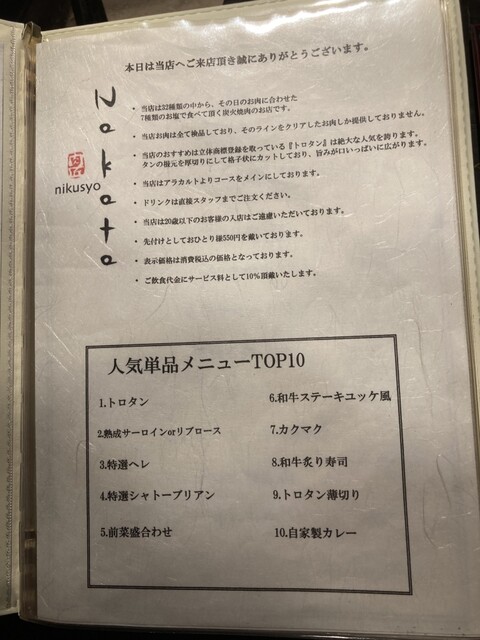 本日は当店へご来店頂き誠にありがとうございます。
Nakata
nikusyo
・当店は32種類の中から、その日のお肉に合わせた
7種類のお塩で食べて頂く炭火焼肉のお店です。
・当店お肉は全て検品しており、そのラインをクリアしたお肉しか提供しておりません。
・当店のおすすめは立体商標登録を取っている『トロタン』は絶大な人気を誇ります。
タンの根元を厚切りにして格子状にカットしており、旨みが口いっぱいに広がります。
・当店はアラカルトよりコースをメインにしております。
・ドリンクは直接スタッフまでご注文ください。
・当店は20歳以下のお客様の入店はご遠慮いただいております。
・先付けとしておひとり様550円を戴いております。
・表示価格は消費税込の価格となっております。
・ご飲食代金にサービス料として10％頂戴いたします。
人気単品メニューTOP10
1.トロタン
2.熟成サーロインorリブロース
3.特選ヘレ
4.特選シャトーブリアン
5.前菜盛合わせ
6.和牛ステーキユッケ風
7.カクマク
8.和牛炙り寿司
9.トロタン薄切り
10.自家製カレー